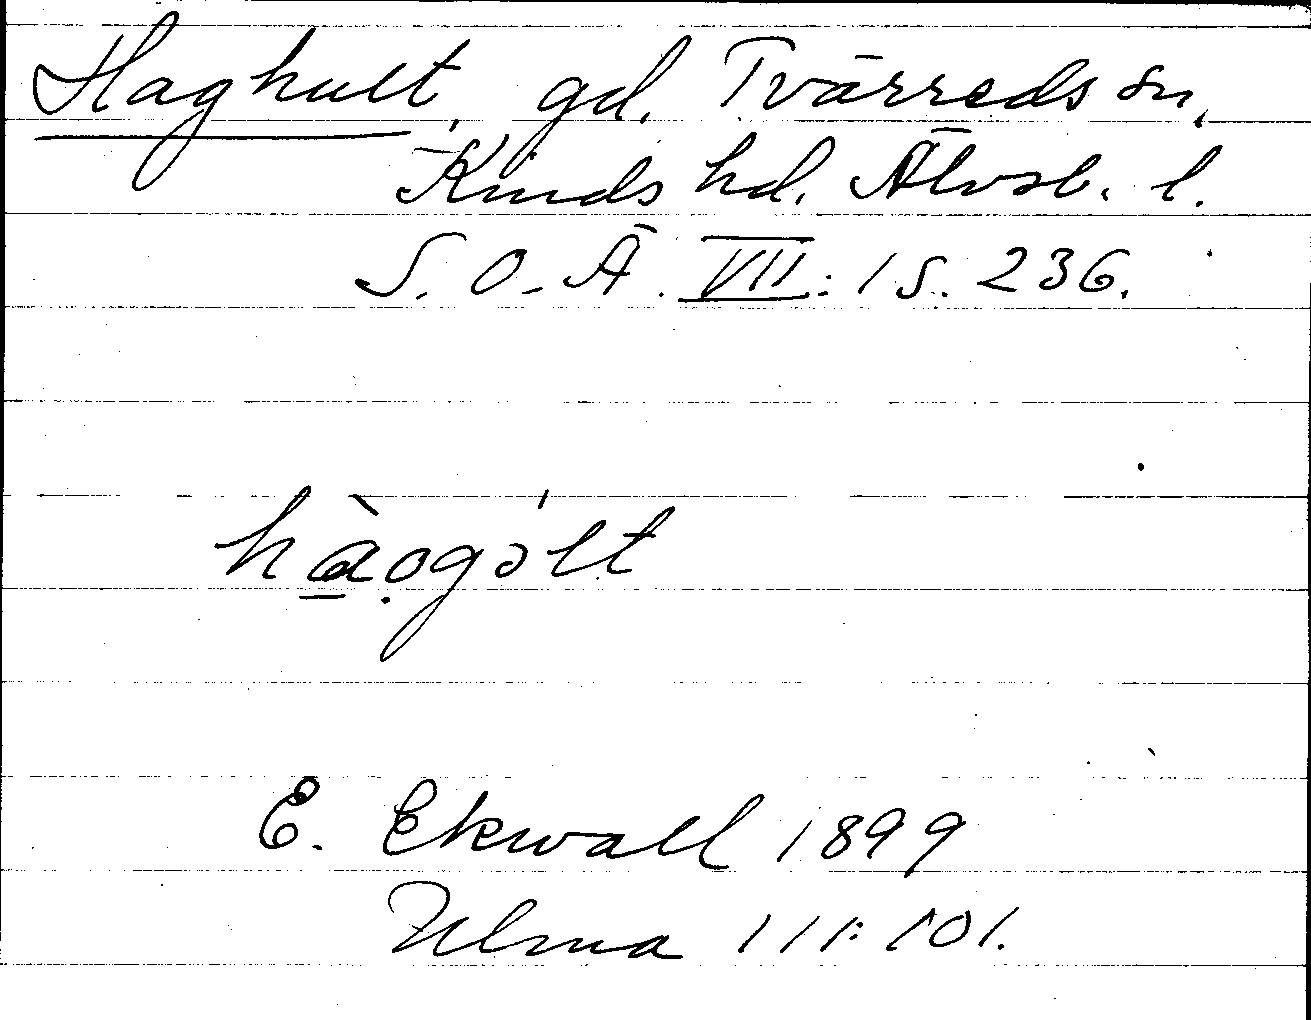 Haghult, gd. Tvärreds sn,
Kinds hd. Älvsb. l.
S. O. Ä. VII: 1 S. 236.
hàogólt
E. Ekwall 1899
Ulma 111: 101.